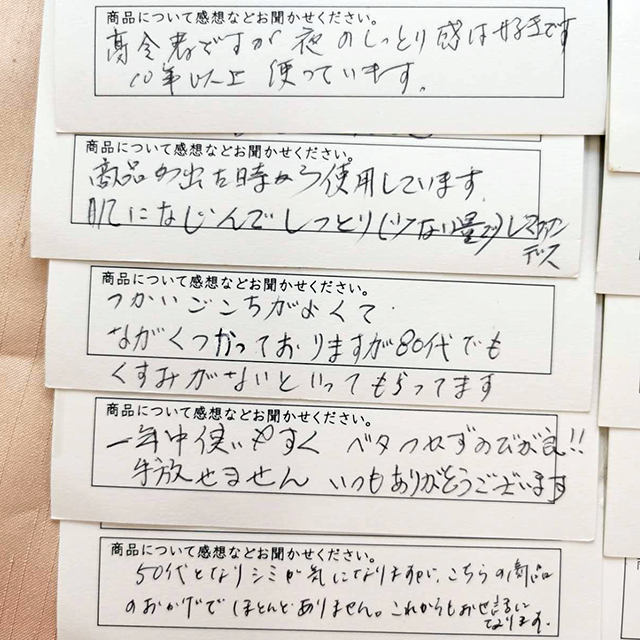 商品について感想などお聞かせください。
高令者ですが夜のしっとり感は好きです
10年以上 使っています。
商品について感想などお聞かせください。
商品の出た時から使用しています.
肌になじんでしっとり(少ない量で)してファン
デス
商品について感想などお聞かせください。
つかいごこちがよくて.
ながくつかっておりますが80代でも
くすみがないといってもらってます
商品について感想などお聞かせください。
一年中使いやすく ベタつかずのびが良!!
手放せません いつもありがとうございます
商品について感想などお聞かせください。
50代となりシミが気になりますが、こちらの商品
のおかげでほとんどありません。これからもお世話に
なります.